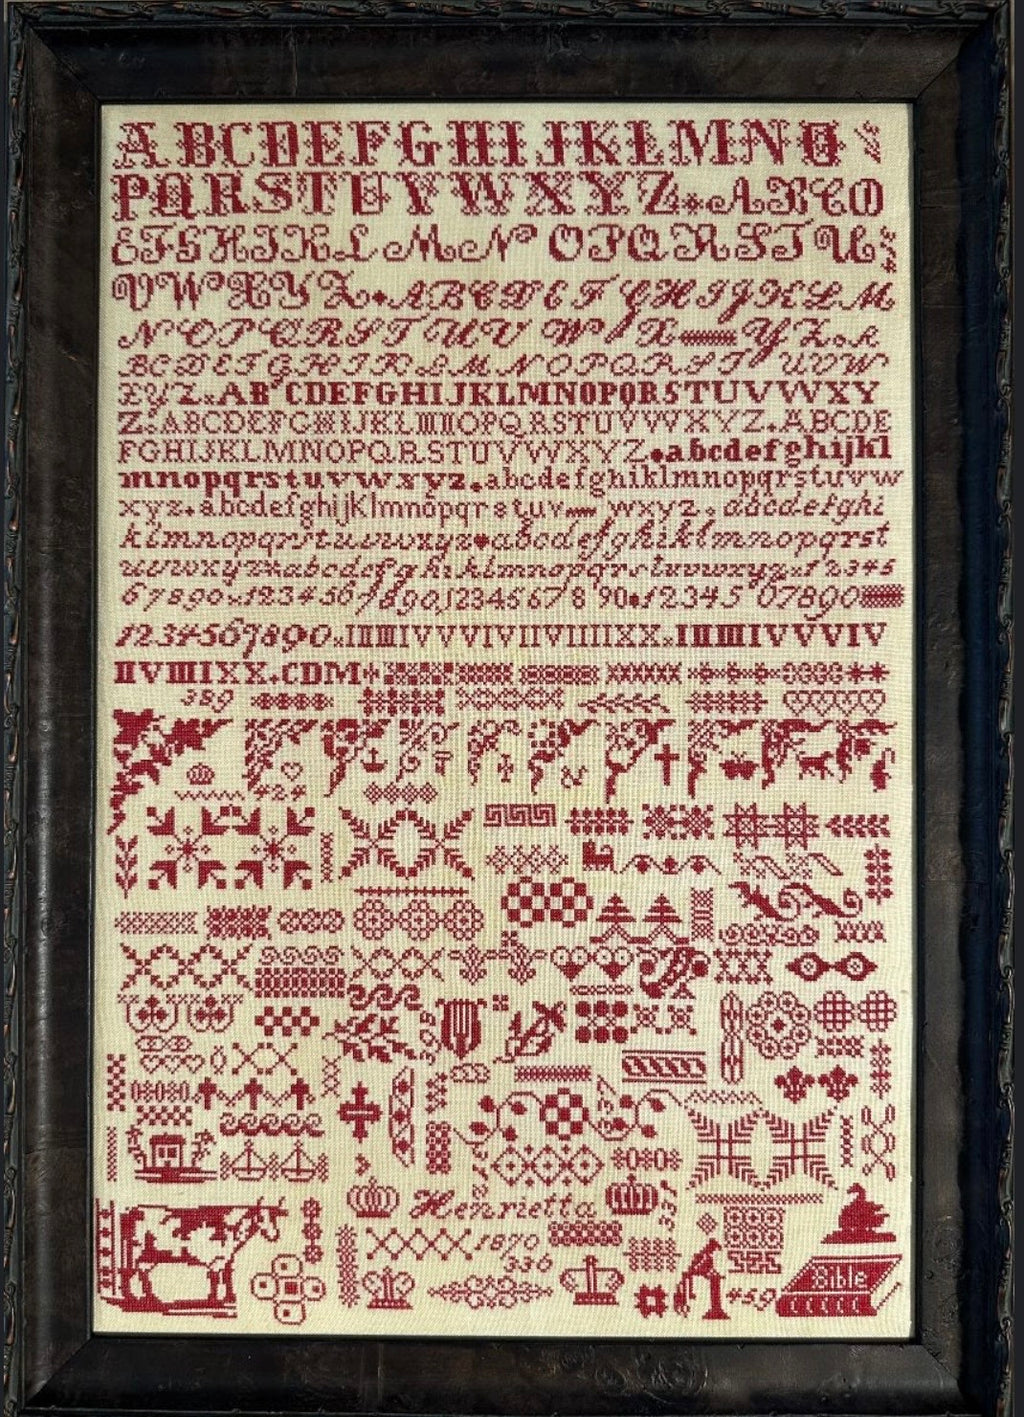 A B C D E F G H I J K L M N O
P Q R S T U V W X Y Z A B C D
E F G H I K L M N O P Q R S T U
V W X Y Z A B C D E F G H I J K L M
N O P Q R S T U V W X Y Z A
B C D E F G H I K L M N O P Q R S T U V W
X Y Z A B C D E F G H I J K L M N O P Q R S T U V W X Y
Z A B C D E F G H I J K L M N O P Q R S T U V W X Y Z A B C D E
F G H I J K L M N O P Q R S T U V W X Y Z a b c d e f g h i j k l
m n o p q r s t u v w x y z a b c d e f g h i k l m n o p q r s t u v w
x y z a b c d e f g h i j K l m n o p q r s t u v w x y z a b c d e f g h i
k l m n o p q r s t u v w x y z a b c d e f g h i k l m n o p q r s t
u v w x y z a b c d e f g h i k l m n o p q r s t u v w x y z 1 2 3 4 5
6 7 8 9 0 1 2 3 4 5 6 7 8 9 0 1 2 3 4 5 6 7 8 9 0 1 2 3 4 5 6 7 8 9 0
1 2 3 4 5 6 7 8 9 0 I II III IV V VI VII VIII IX X I II III IV V VI V
II VIII IX X C D M
389
424
395
Henrietta
337
1870
336
Bible
459